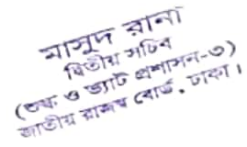 মাসুদ রানা
দ্বিতীয় সচিব
(শুল্ক ও ভ্যাট প্রশাসন-৩)
জাতীয় রাজস্ব বোর্ড, ঢাকা।